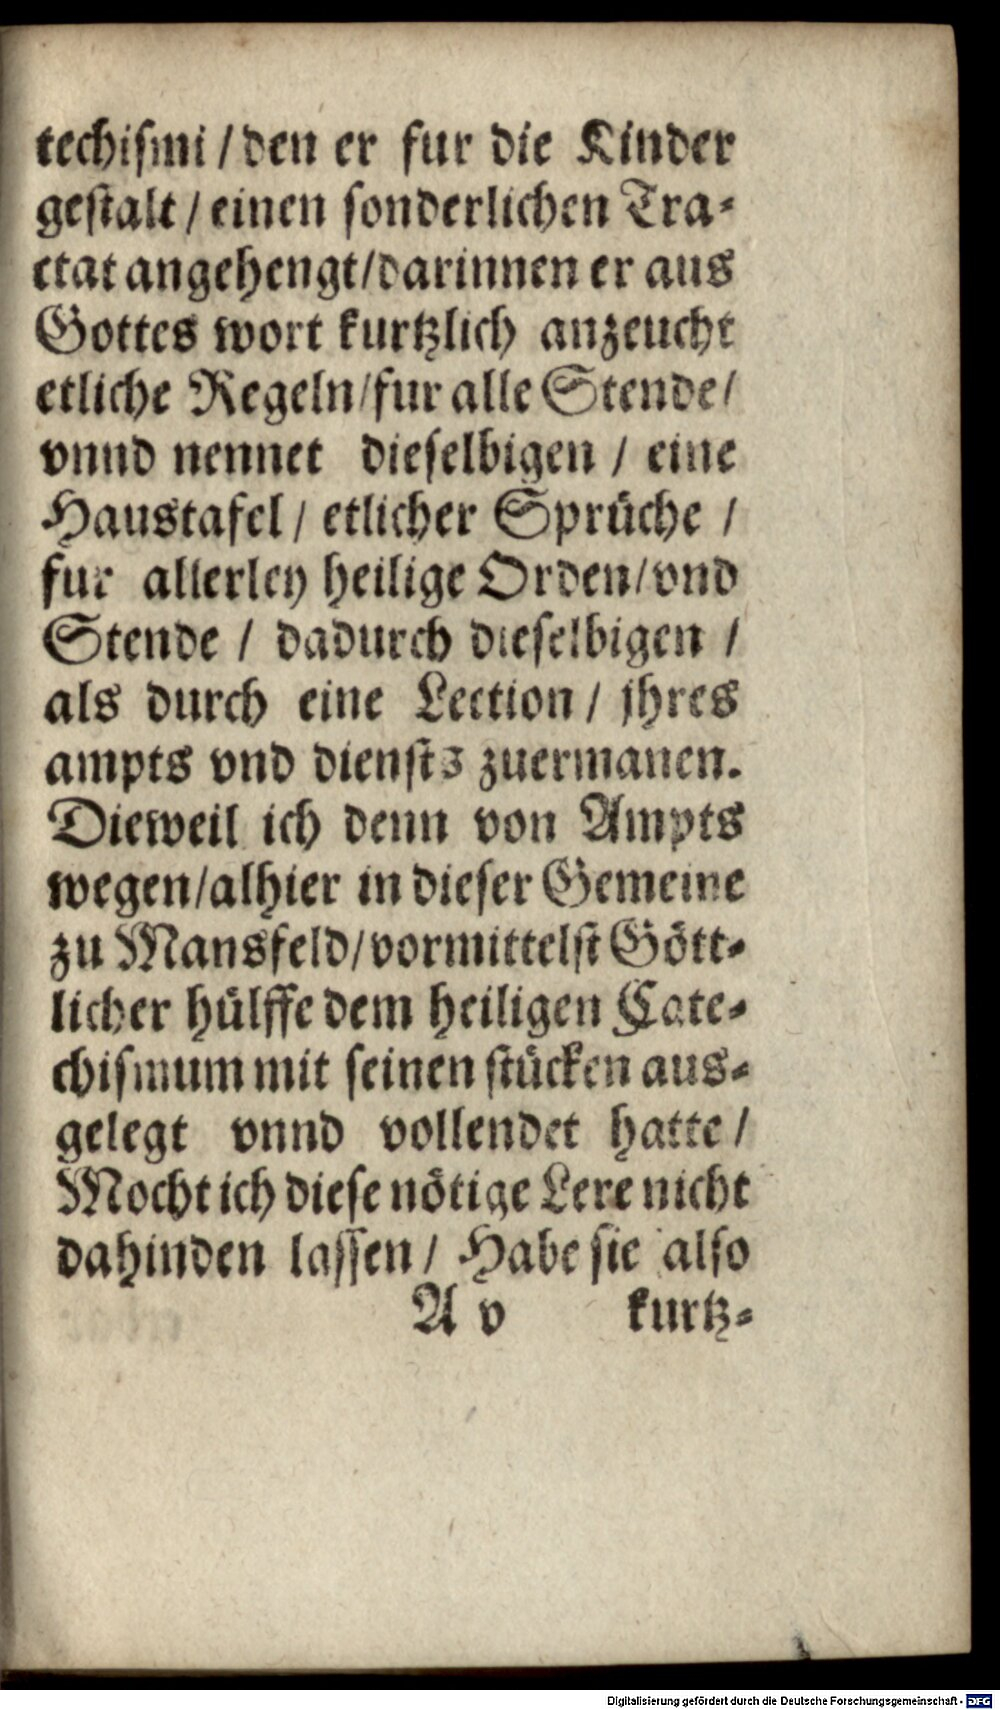 techiſmi / den er fur die Kinder
geſtalt / einen ſonderlichen Tra⸗
ctat angehengt / darinnen er aus
Gottes wort kurtzlich anzeucht
etliche Regeln / fur alle Stende /
vnnd nennet dieſelbigen / eine
Haustafel / etlicher Sprüche /
fur allerley heilige Orden / vnd
Stende / dadurch dieſelbigen /
als durch eine Lection / jhres
ampts vnd dienſts zuermanen.
Dieweil ich denn von Ampts
wegen / alhier in dieſer Gemeine
zu Mansfeld / vormittelſt Gött⸗
licher hülffe dem heiligen Cate⸗
chiſmum mit ſeinen ſtücken aus⸗
gelegt vnnd vollendet hatte /
Mocht ich dieſe nötige Lere nicht
dahinden laſſen / Habe ſie alſo
A v kurtz⸗
Digitalisierung gefördert durch die Deutsche Forschungsgemeinschaft - DFG